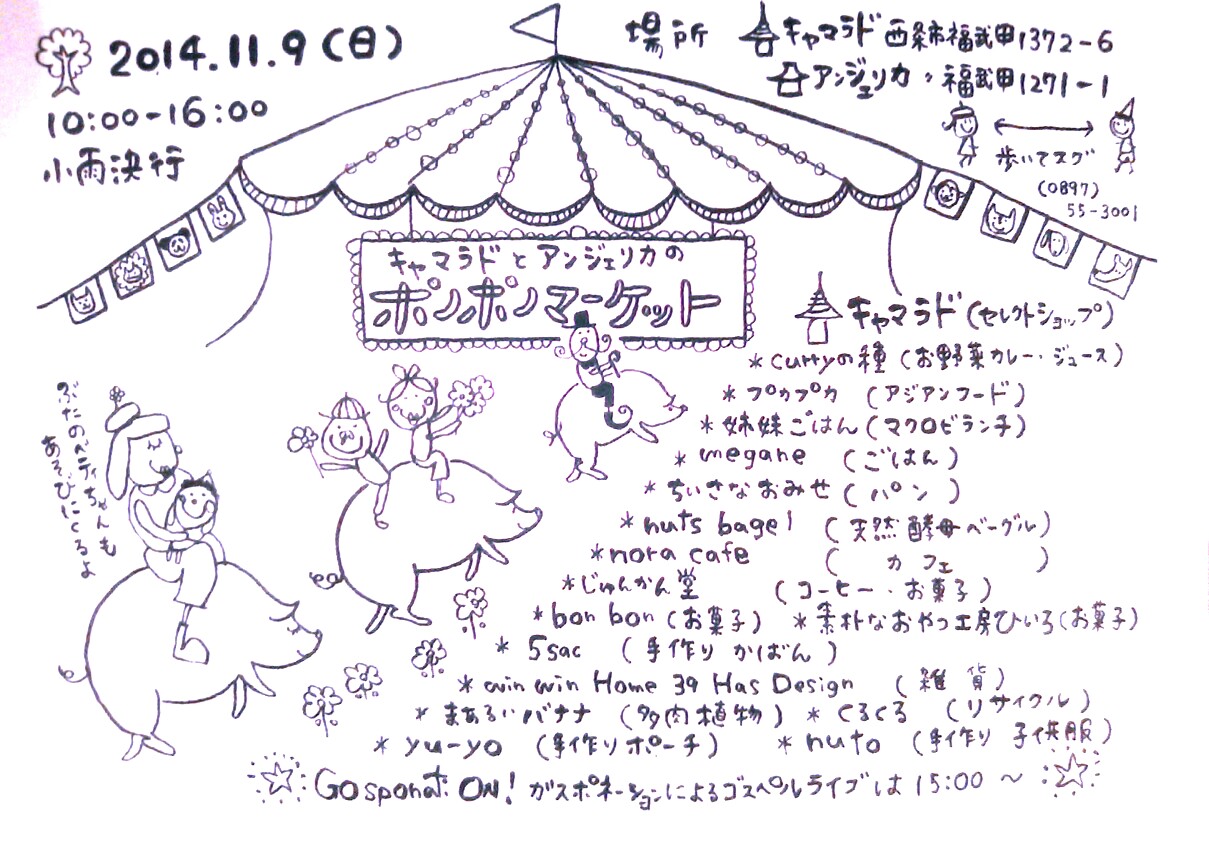 2014.11.9(日)
10:00-16:00
小雨決行
場所 キャマラド 西条市福武甲1372-6
アンジェリカ 〃 福武甲1271-1
歩いてスグ
(0897)
55-3001
キャマラドとアンジェリカの
ポンポンマーケット
ぶたのベティちゃんも
あそびにくるよ
キャマラド(セレクトショップ)
*curryの種(お野菜カレー・ジュース)
*プカプカ (アジアンフード)
*姉妹ごはん(マクロビランチ)
*megane (ごはん)
*ちいさなおみせ(パン)
*nuts bagel (天然酵母ベーグル)
*nora cafe (カフェ)
*じゅんかん堂 (コーヒー・お菓子)
*bon bon(お菓子) *素朴なおやつ工房ひいろ(お菓子)
*5sac (手作りかばん)
*win win Home 39 Has Design (雑貨)
*まあるいバナナ (多肉植物) *くるくる (リサイクル)
*yu-yo (手作りポーチ) *nuto (手作り子供服)
Gosponat ON! ガスポネーションによるゴスペルライブは15:00〜